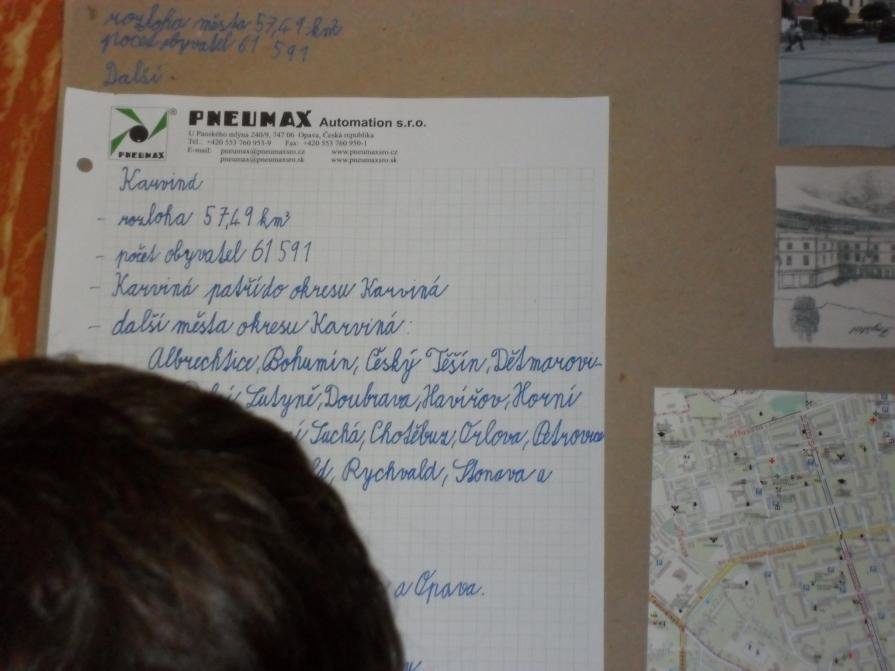 rozloha města 57,49 km
počet obyvatel 61 591
Další
PNEUMAX Automation s.r.o.
U Panského mlýna 240/9, 747 06 Opava, Česká republika
Tel.: +420 553 760 953-9 Fax: +420 553 760 950-1
E-mail: pneumax@pneumaxsro.cz www.pneumaxsro.cz
pneumax@pneumaxsro.sk www.pneumaxsro.sk
PNEUMAX
Karviná
- rozloha 57,49 km²
- počet obyvatel 61 591
- Karviná patří do okresu Karviná
- další města okresu Karviná:
Albrechtice, Bohumín, Český Těšín, Dětmarovi-
Lutyně, Doubrava, Havířov, Horní
Suchá, Chotěbuz, Orlova, Petrovice
Rychvald, Stonava a
a Opava.